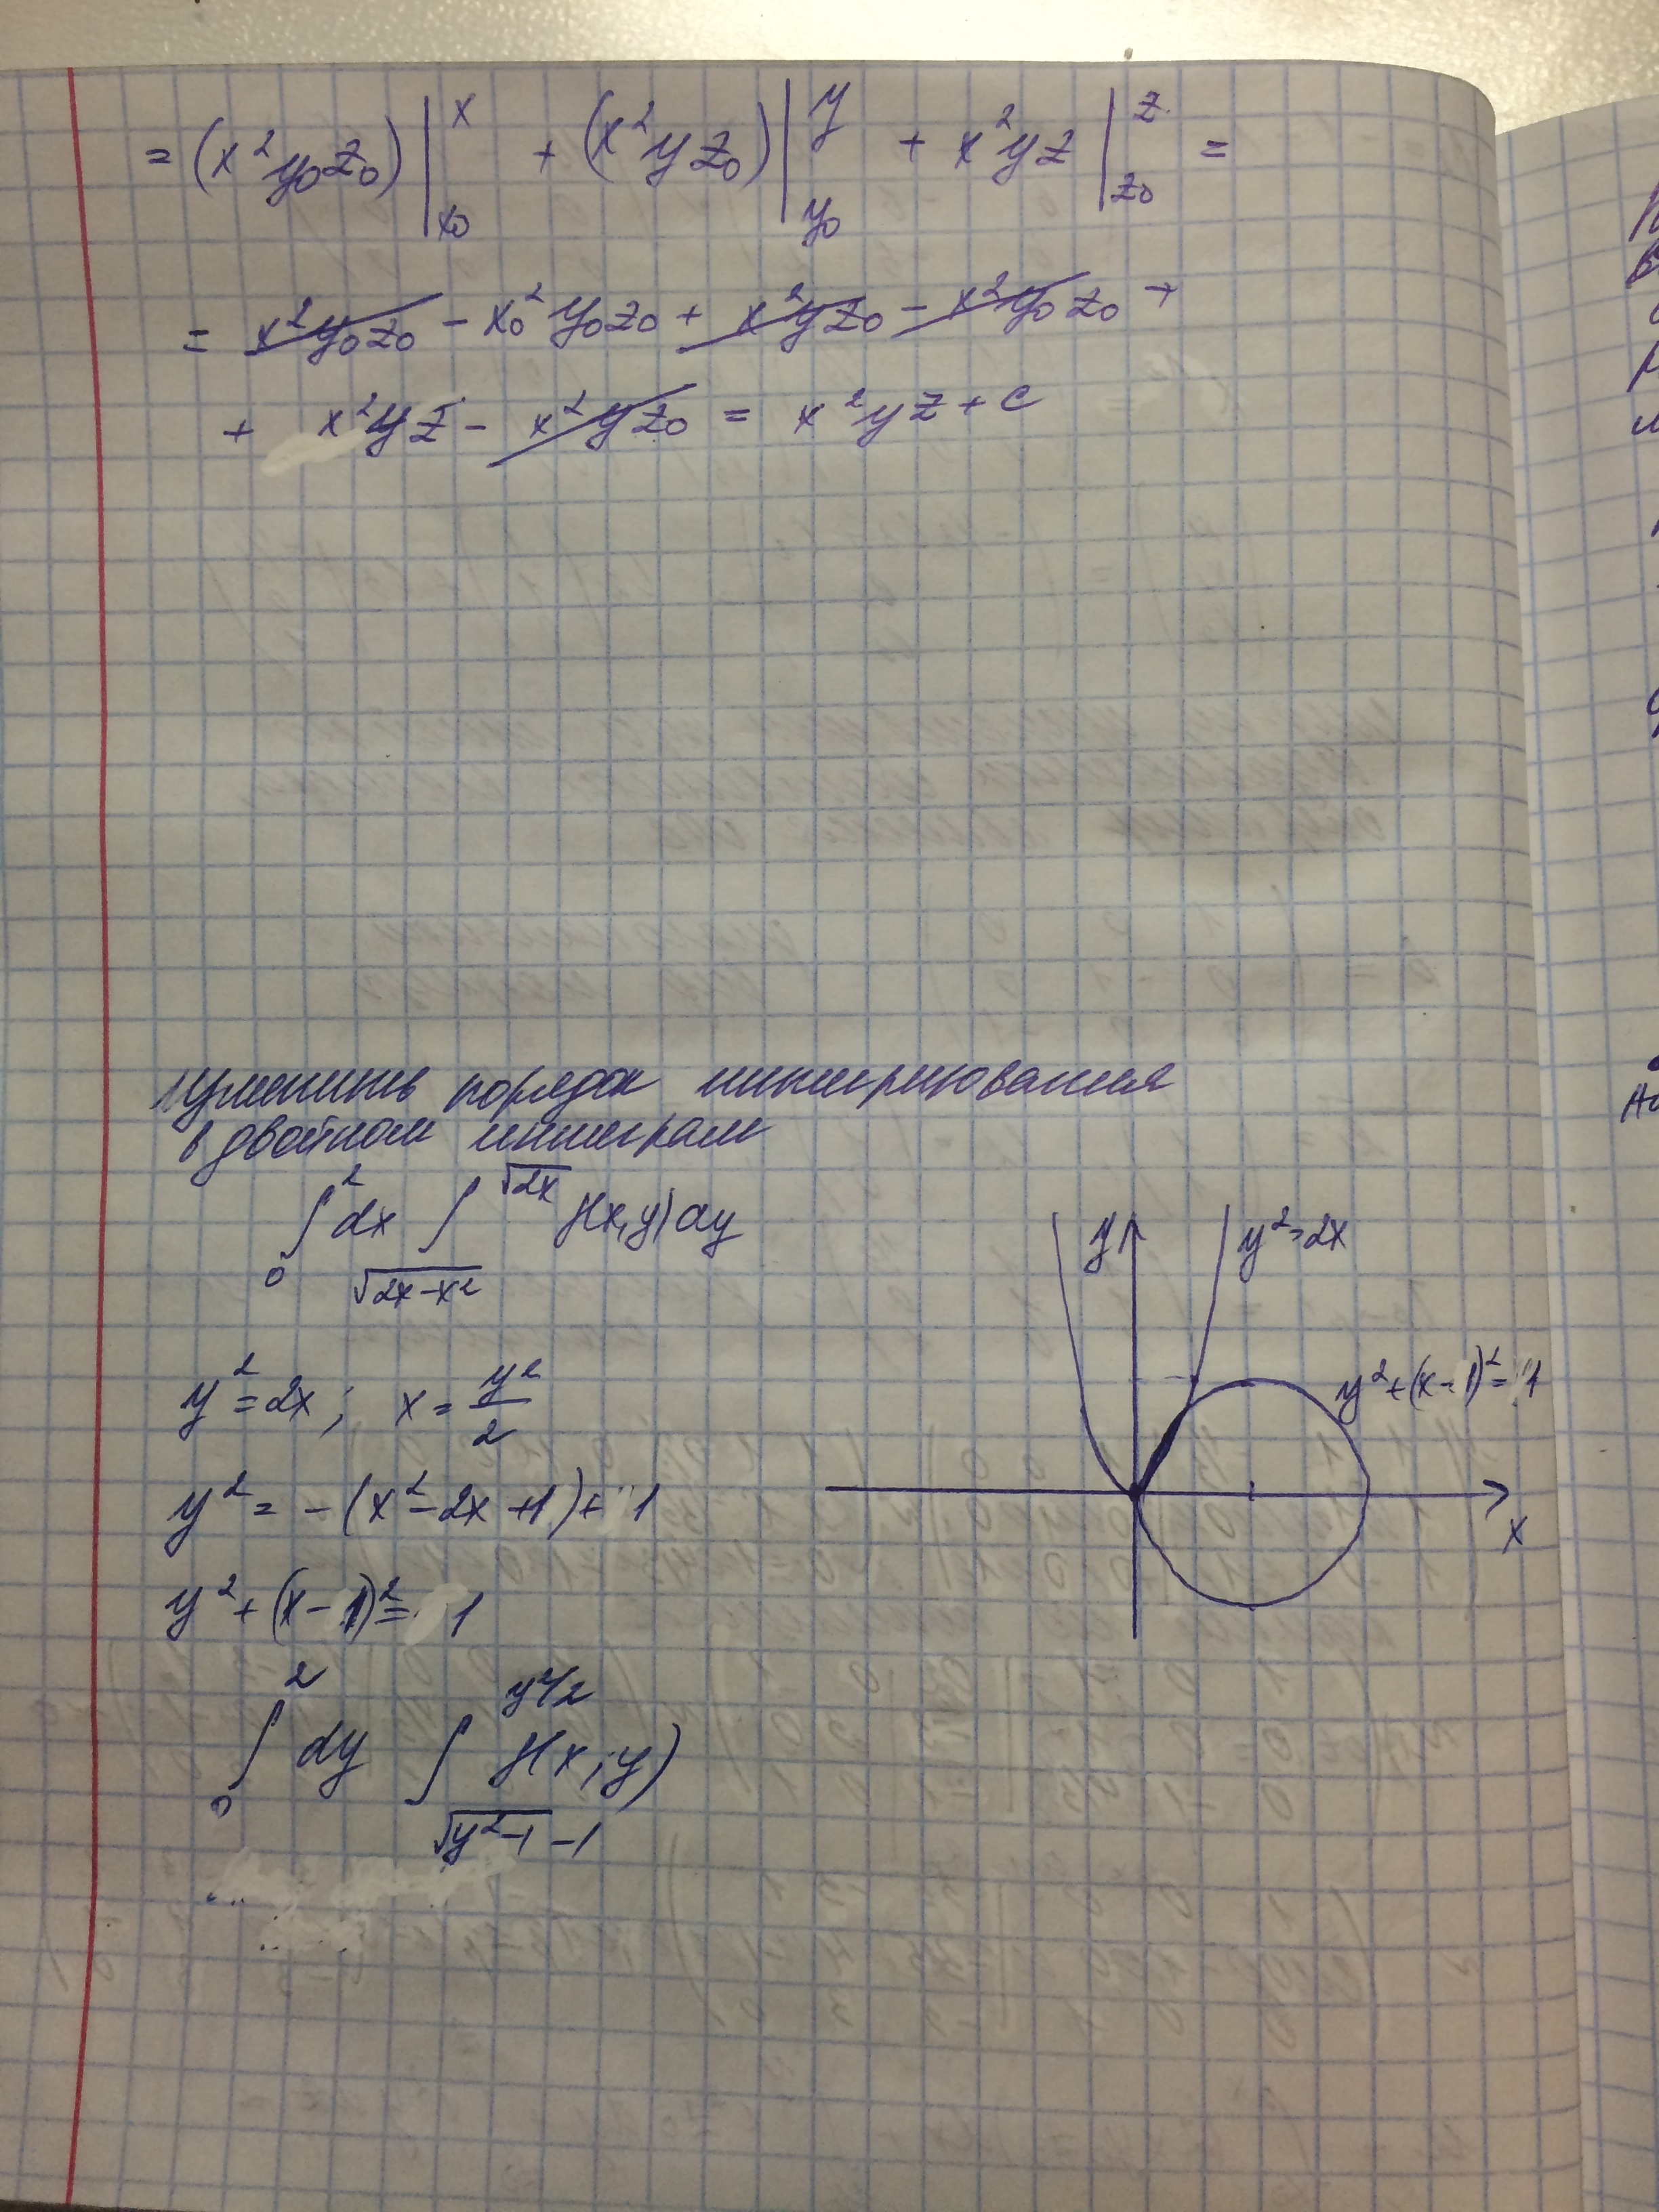 = (x²y₀z₀)|ˣₓ₀ + (x²yz₀)|ʸy₀ + x²yz|ᶻz₀ =
= x²y₀z₀ - x₀²y₀z₀ + x²yz₀ - x²y₀z₀ +
+ x²yz - x²yz₀ = x²yz + c
Изменить порядок интегрирования
в двойном интеграле
∫₀² dx ∫_{√(2x-x²)}^{√(2x)} f(x,y)dy
y² = 2x ; x = y²/2
y² = -(x² - 2x + 1) + 1
y² + (x - 1)² = 1
∫₀² dy ∫_{√(y²-1) - 1}^{y²/2} f(x,y)
y
y² = 2x
y² + (x - 1)² = 1
x